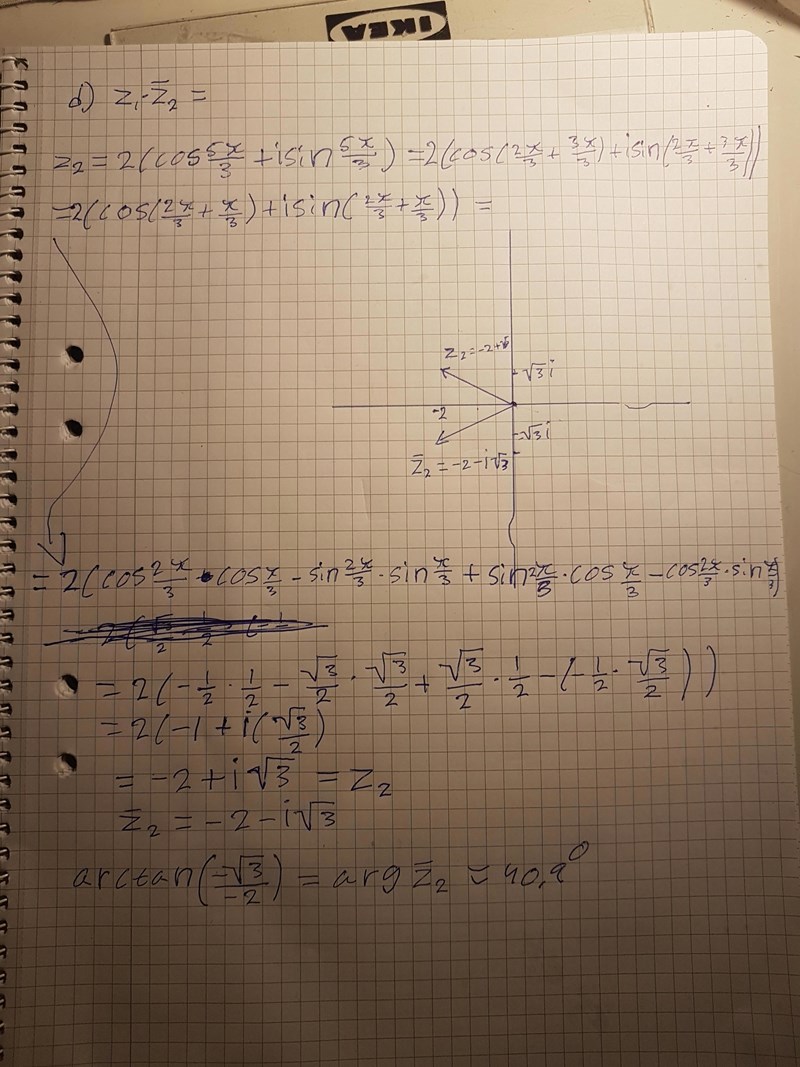 IKEA
d) z₁·z̄₂ =
z₂ = 2(cos 5π/3 + i sin 5π/3) = 2(cos(2π/3 + 3π/3) + i sin(2π/3 + 3π/3))
= 2(cos(2π/3 + π/3) + i sin(2π/3 + π/3)) =
z₂ = -2+i√3
√3 i
-2
-√3 i
z̄₂ = -2-i√3
= 2(cos 2π/3 · cos π/3 - sin 2π/3 · sin π/3 + sin 2π/3 · cos π/3 - cos 2π/3 · sin π/3)
= 2(-1/2 · 1/2 - √3/2 · √3/2 + √3/2 · 1/2 - (-1/2 · √3/2))
= 2(-1 + i(√3/2)
= -2 + i√3 = z₂
z̄₂ = -2 - i√3
arctan(-√3/-2) = arg z̄₂ ≈ 40,9°